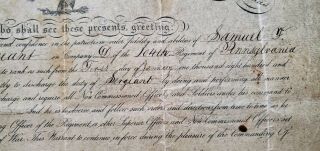 who shall see these presents, greeting:
and confidence in the patriotism valor fidelity and abilities of Samuel
in Company D of the 104th Regiment of Pennsylvania
to rank as such from the First day of January one thousand eight hundred and
to discharge the duty of Sergeant by doing and performing all manner
charge and require all Non Commissioned Officers and Soldiers under his command to
he is to observe and follow such orders and directions from time to time as he
Officer of the Regiment, or other Superior Officers and Non Commissioned Officers set
of War. This Warrant to continue in force during the pleasure of the Commanding Of